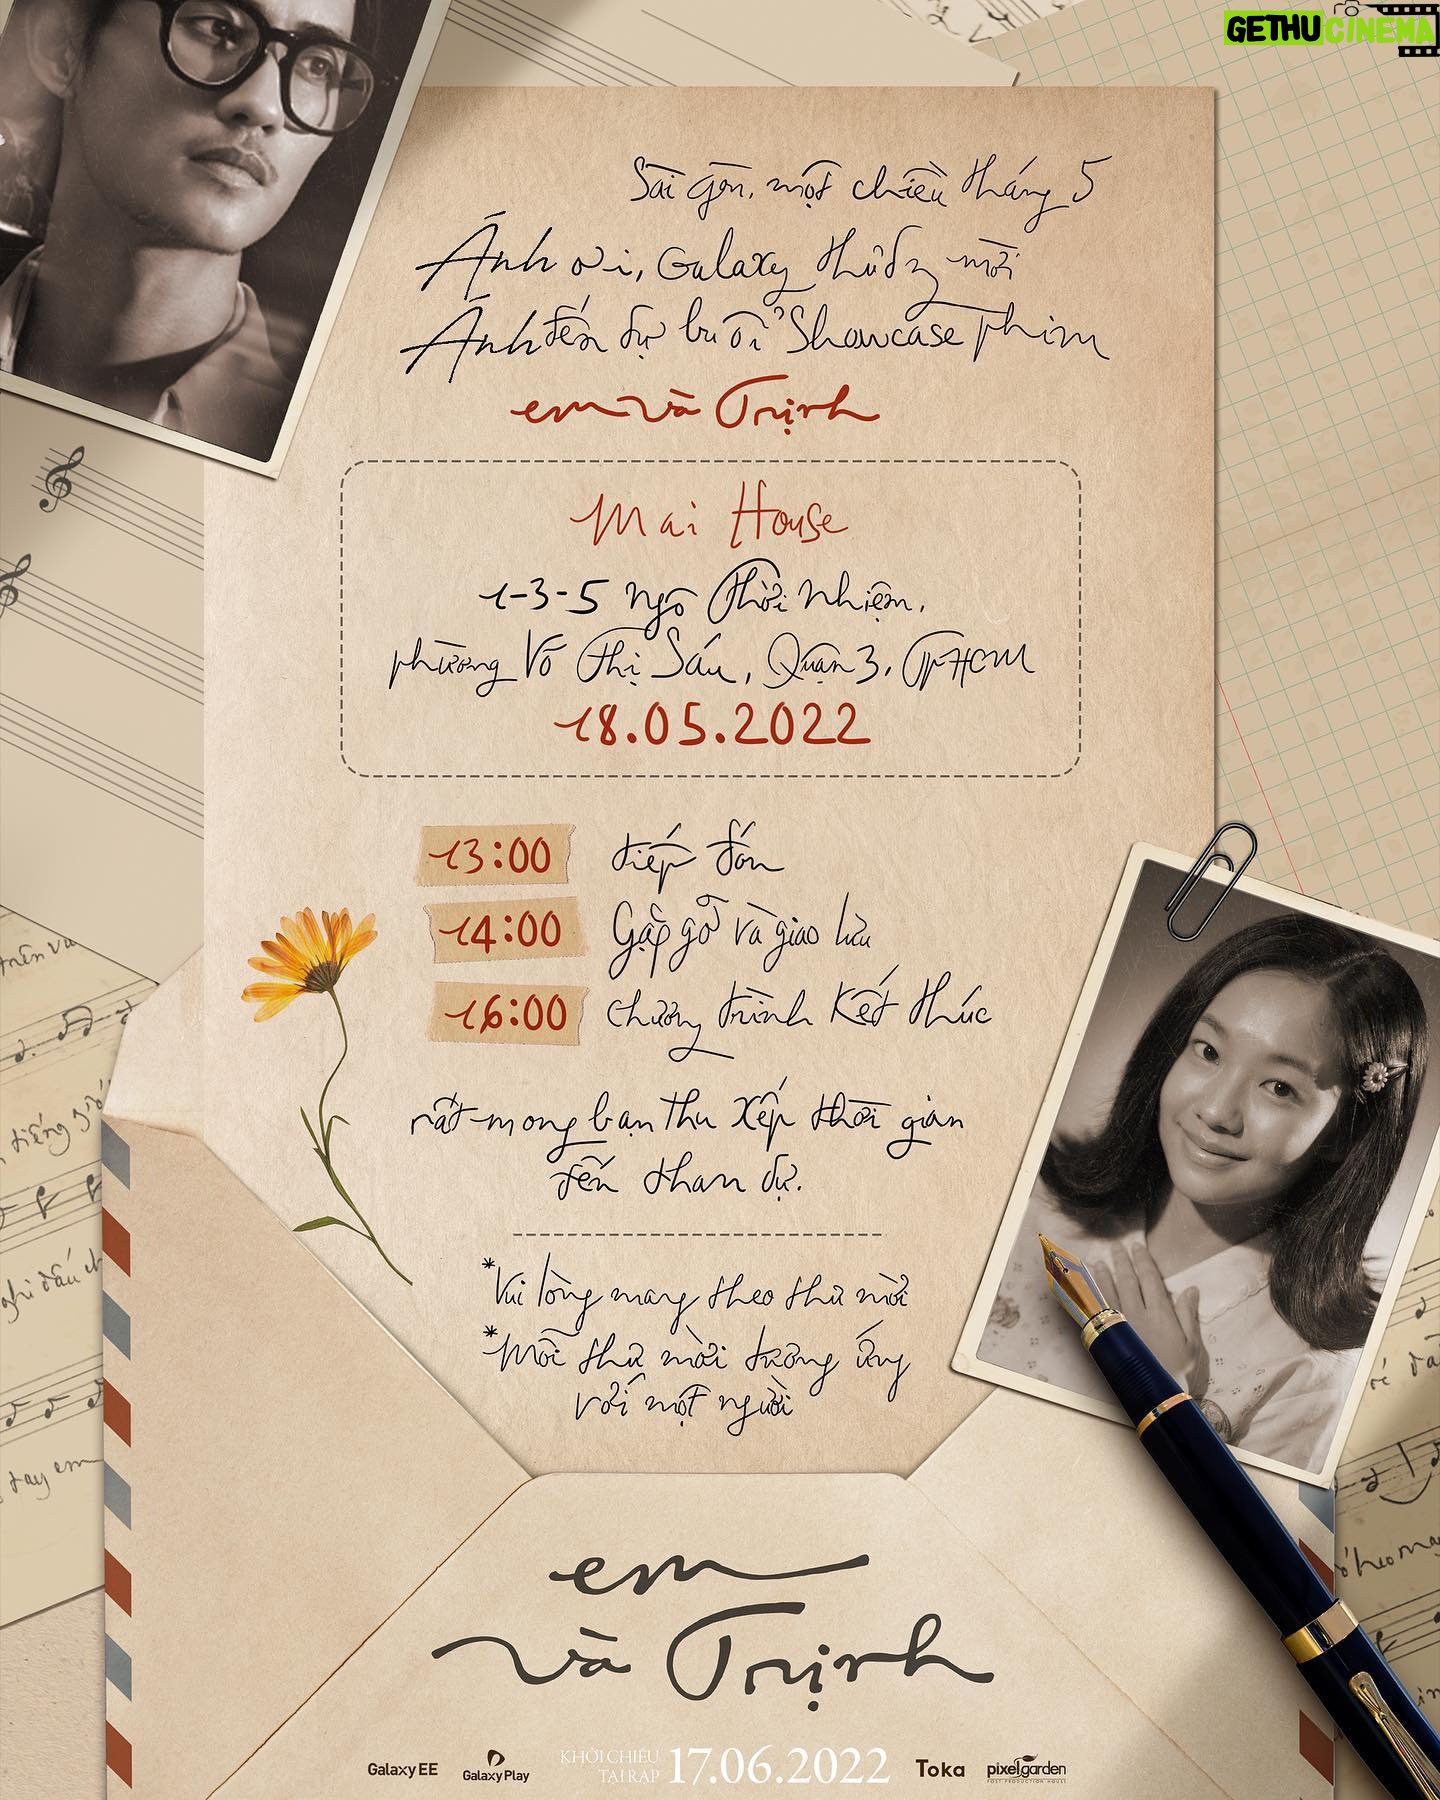 GETHU CINEMA
Sài Gòn, một chiều tháng 5
Ánh ơi, Galaxy thư này mời
Ánh đến dự buổi Showcase phim
em và Trịnh
Mai House
1-3-5 Ngô Thời Nhiệm,
phường Võ Thị Sáu, Quận 3, TPHCM
18.05.2022
13:00 tiếp đón
14:00 Gặp gỡ và giao lưu
16:00 chương trình kết thúc
rất mong bạn thu xếp thời gian
đến tham dự.
*Vui lòng mang theo thư mời
*Mỗi thư mời tương ứng
với một người
em
và Trịnh
Galaxy EE Galaxy Play KHỞI CHIẾU TẠI RẠP 17.06.2022 Toka pixelgarden
POST PRODUCTION HOUSE